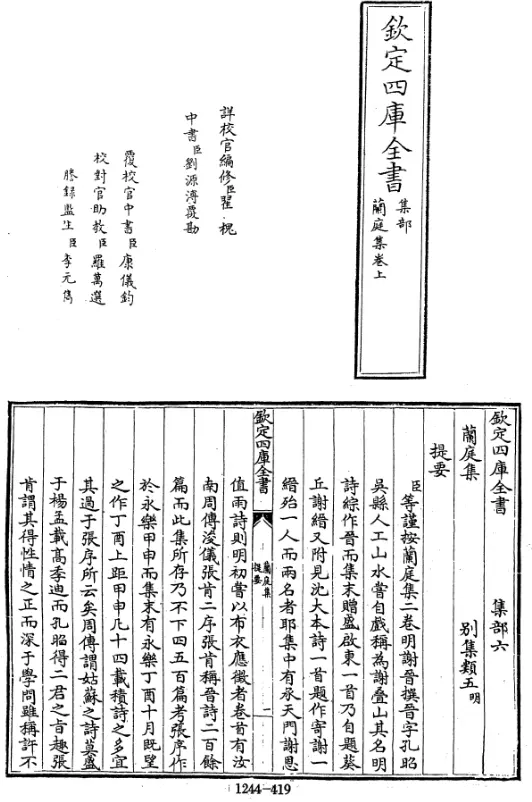 欽定四庫全書
集部
蘭庭集卷上
詳校官編修臣翟槐
中書臣劉源溥覆勘
覆校官中書臣康儀鈞
校對官助教臣羅萬選
謄錄監生臣李元雋
欽定四庫全書 集部六
蘭庭集 別集類五明
提要
臣等謹按蘭庭集二卷明謝晉撰晉字孔昭
吳縣人工山水嘗自戲稱為謝疊山其名明
詩綜作晉而集末贈盛啟東一首乃自題葵
丘謝縉又附見沈大本詩一首題作寄謝一
縉殆一人而兩名者耶集中有承天門謝恩
欽定四庫全書
蘭庭集
提要
一
值雨詩則明初嘗以布衣應徵者卷首有汝
南周傳浚儀張肯二序張肯稱晉詩二百餘
篇而此集所存乃不下四五百篇者張序作
於永樂甲申而集末有永樂丁酉十月既望
之作丁酉上距甲申凡十四載積詩之多宜
其過于張序所云矣周傳謂姑蘇之詩莫盛
于楊孟載高季迪而孔昭得二君之旨趣張
肯謂其得性情之正而深于學問雖稱許不
1244-419